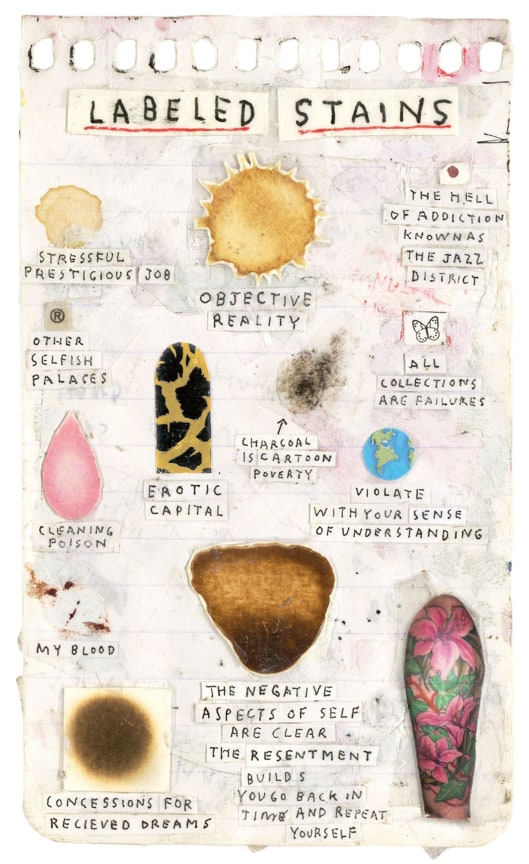 LABELED STAINS
STRESSFUL
PRESTIGIOUS JOB
OBJECTIVE
REALITY
THE HELL
OF ADDICTION
KNOWNAS
THE JAZZ
DISTRICT
®
OTHER
SELFISH
PALACES
ALL
COLLECTIONS
ARE FAILURES
CHARCOAL
IS CARTOON
POVERTY
EROTIC
CAPITAL
VIOLATE
WITH YOUR SENSE
OF UNDERSTANDING
CLEANING
POISON
MY BLOOD
THE NEGATIVE
ASPECTS OF SELF
ARE CLEAR
THE RESENTMENT
BUILDS
YOU GO BACK IN
TIME AND REPEAT
YOURSELF
CONCESSIONS FOR
RECIEVED DREAMS